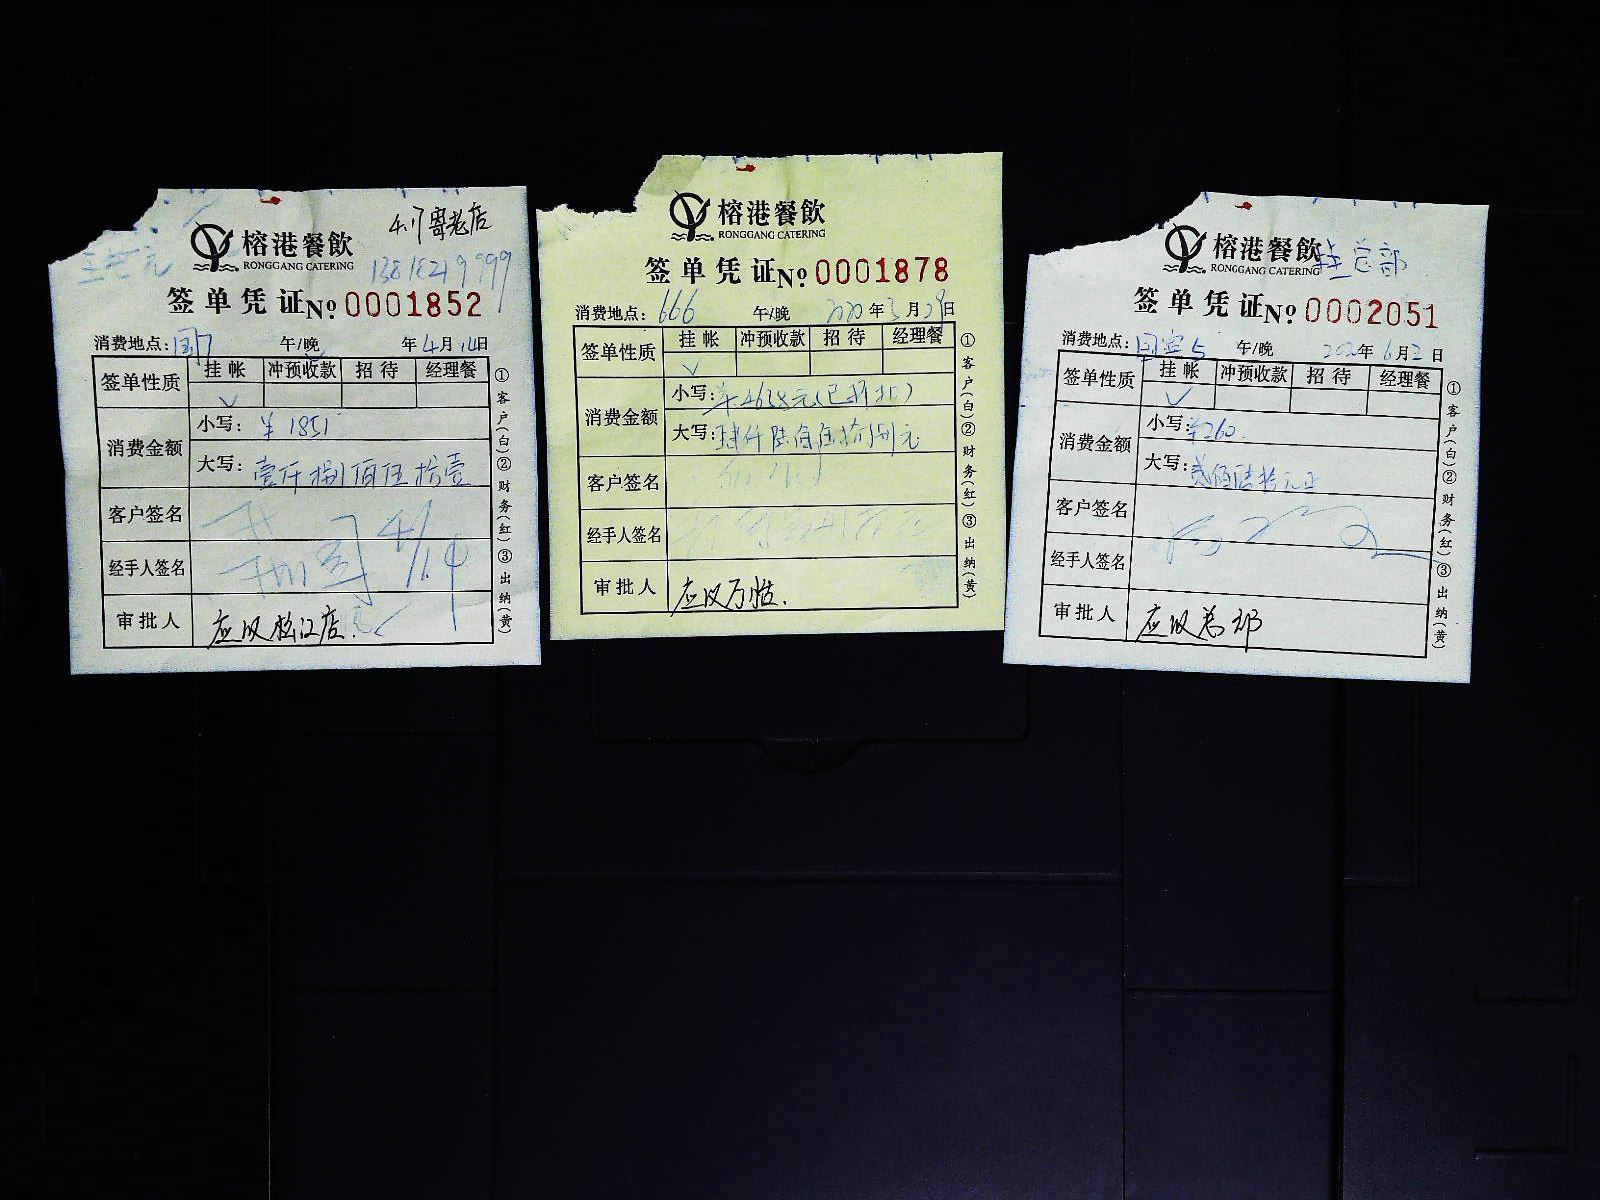 4.17寄老店
榕港餐飲
RONGGANG CATERING
签单凭证 No 0001852
消费地点: 国门 午/晚 年4月14日
签单性质 挂帐 冲预收款 招待 经理餐
✓
消费金额
小写: ¥1851
大写: 壹仟捌佰伍拾壹
客户签名
经手人签名
4/14
审批人 应收松江店.
①客户(白)②财务(红)③出纳(黄)
榕港餐飲
RONGGANG CATERING
签单凭证 No 0001878
消费地点: 666 午/晚 2020年3月29日
签单性质 挂帐 冲预收款 招待 经理餐
✓
消费金额
小写: ¥4658元(已折扣)
大写: 肆仟陆佰伍拾捌元
客户签名
经手人签名
审批人 应收万恒.
①客户(白)②财务(红)③出纳(黄)
榕港餐飲 挂总部
RONGGANG CATERING
签单凭证 No 0002051
消费地点: 国宾5 午/晚 2020年6月2日
签单性质 挂帐 冲预收款 招待 经理餐
✓
消费金额
小写: ¥260.
大写: 贰佰陆拾元正
客户签名
经手人签名
审批人 应收总部
①客户(白)②财务(红)③出纳(黄)